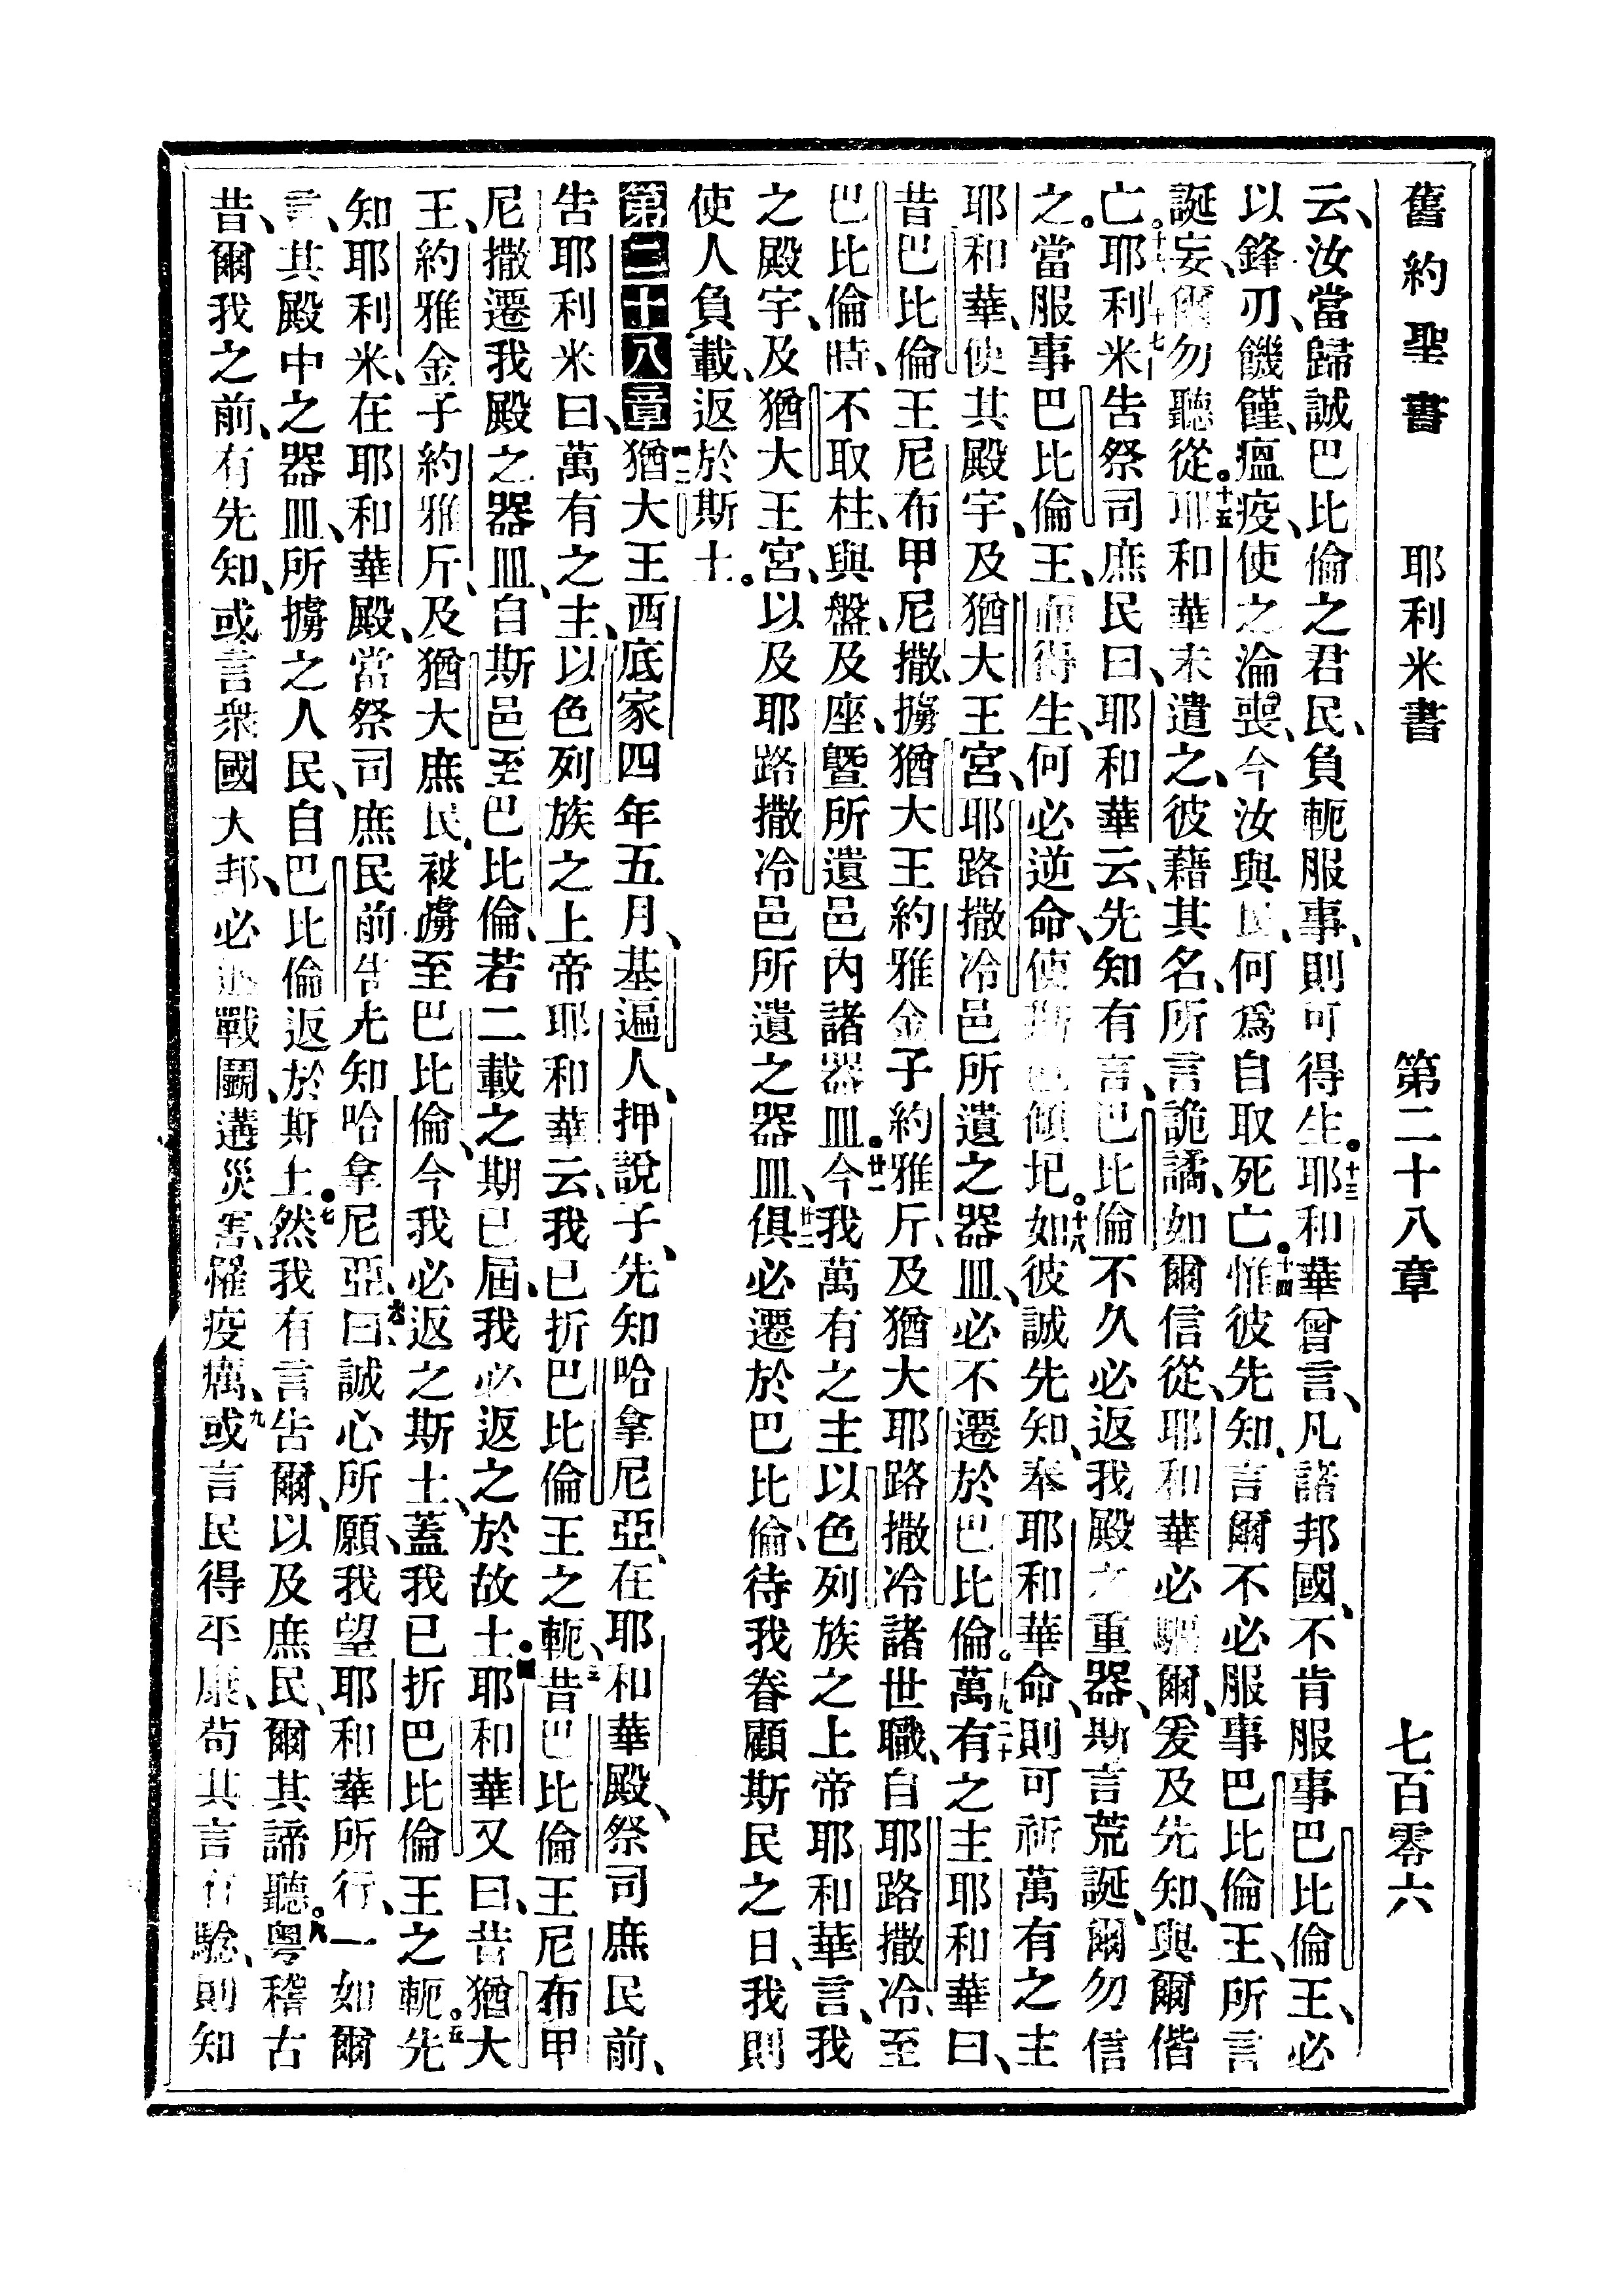 舊約聖書 耶利米書 第二十八章 七百零六
云、汝當歸誠巴比倫之君民、負軛服事、則可得生。十三耶和華曾言、凡諸邦國、不肯服事巴比倫王、必
以鋒刃、饑饉、瘟疫、使之淪喪、今汝與民、何爲自取死亡。十四惟彼先知、言爾不必服事巴比倫王、所言
誕妄、爾勿聽從。十五耶和華未遣之、彼藉其名、所言詭譎、如爾信從、耶和華必驅爾、爰及先知、與爾偕
亡。耶利米告祭司庶民曰、耶和華云、先知有言、巴比倫不久必返我殿之重器、斯言荒誕、爾勿信
之。十七當服事巴比倫王、而得生、何必逆命、使斯邑傾圮。十八如彼誠先知、奉耶和華命、則可祈萬有之主
耶和華、使其殿宇、及猶大王宮、耶路撒冷邑所遺之器皿、必不遷於巴比倫。萬有之主耶和華曰、
昔巴比倫王尼布甲尼撒、擄猶大王約雅金子約雅斤、及猶大耶路撒冷諸世職、自耶路撒冷、至
巴比倫時、不取柱、與盤、及座、曁所遺邑內諸器皿。廿一今我萬有之主以色列族之上帝耶和華言、我
之殿宇、及猶大王宮、以及耶路撒冷邑所遺之器皿、廿二俱必遷於巴比倫、待我眷顧斯民之日、我則
使人負載、返於斯土。
第二十八章 猶大王西底家四年五月、基遍人、押說子、先知哈拿尼亞、在耶和華殿、祭司庶民前、
告耶利米曰、二萬有之主、以色列族之上帝耶和華云、我已折巴比倫王之軛、三昔巴比倫王尼布甲
尼撒遷我殿之器皿、自斯邑至巴比倫、若二載之期已屆、我必返之於故土。四耶和華又曰、昔猶大
王、約雅金子約雅斤、及猶大庶民、被虜至巴比倫、今我必返之斯土、蓋我已折巴比倫王之軛。五先
知耶利米、在耶和華殿、當祭司庶民前、告先知哈拿尼亞、六曰、誠心所願、我望耶和華所行、一如爾
言、其殿中之器皿、所擄之人民、自巴比倫返於斯土。七然我有言告爾、以及庶民、爾其諦聽。八粤稽古
昔、爾我之前、有先知、或言衆國大邦、必戰鬭、遘災害、罹疫癘、九或言民得平康、苟其言有驗、則知